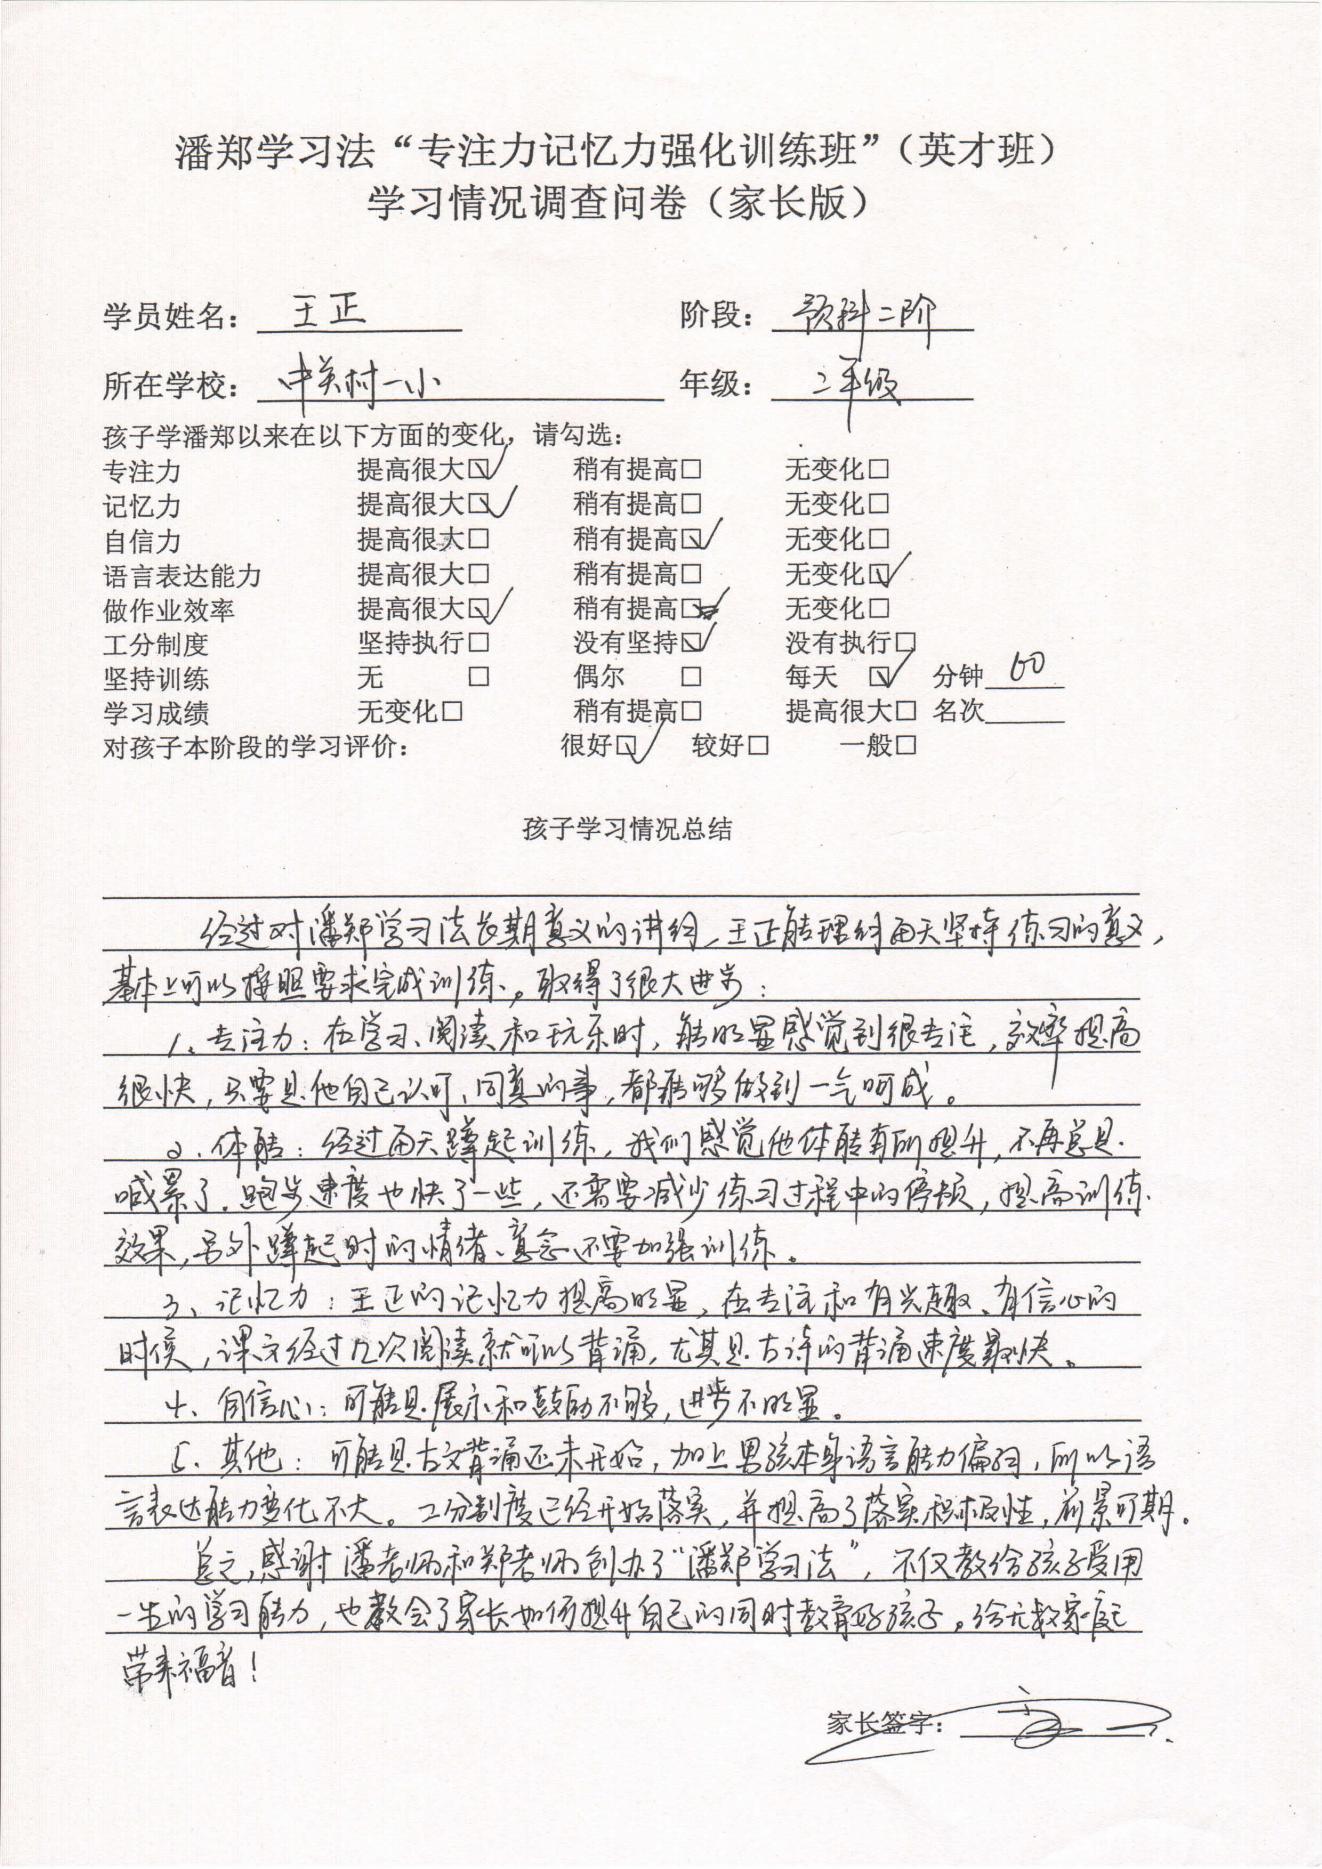 潘郑学习法“专注力记忆力强化训练班”（英才班）
学习情况调查问卷（家长版）
学员姓名： 王正 阶段： 预科二阶
所在学校： 中关村一小 年级： 二年级
孩子学潘郑以来在以下方面的变化，请勾选：
专注力 提高很大☑ 稍有提高□ 无变化□
记忆力 提高很大☑ 稍有提高□ 无变化□
自信力 提高很大□ 稍有提高☑ 无变化□
语言表达能力 提高很大□ 稍有提高□ 无变化☑
做作业效率 提高很大☑ 稍有提高□ 无变化□
工分制度 坚持执行□ 没有坚持☑ 没有执行□
坚持训练 无 □ 偶尔 □ 每天 ☑ 分钟 60
学习成绩 无变化□ 稍有提高□ 提高很大□ 名次
对孩子本阶段的学习评价： 很好☑ 较好□ 一般□
孩子学习情况总结
经过对潘郑学习法长期意义的讲约，王正能理约每天坚持练习的意义，
基本上可以按照要求完成训练。取得了很大进步：
1、专注力：在学习、阅读和玩乐时，能明显感觉到很专注，效率提高
很快，只要是他自己认可、同意的事，都能够做到一气呵成。
2、体能：经过每天蹲起训练，我们感觉他体能有所提升，不再总是
喊累了。跑步速度也快了一些，还需要减少练习过程中的停顿，提高训练
效果，另外蹲起时的情绪、意念还要加强训练。
3、记忆力：王正的记忆力提高明显，在专注和有兴趣、有信心的
时候，课文经过几次阅读就可以背诵，尤其是古诗的背诵速度最快。
4、自信心：可能是展示和鼓励不够，进步不明显。
5、其他：可能是古文背诵还未开始，加上男孩本身语言能力偏弱，所以语
言表达能力变化不大。工分制度已经开始落实，并提高了落实积极性，前景可期。
总之，感谢潘老师和郑老师创办了“潘郑学习法”，不仅教给孩子受用
一生的学习能力，也教会了家长如何提升自己的同时教育好孩子。给无数家庭
带来福音！
家长签字：